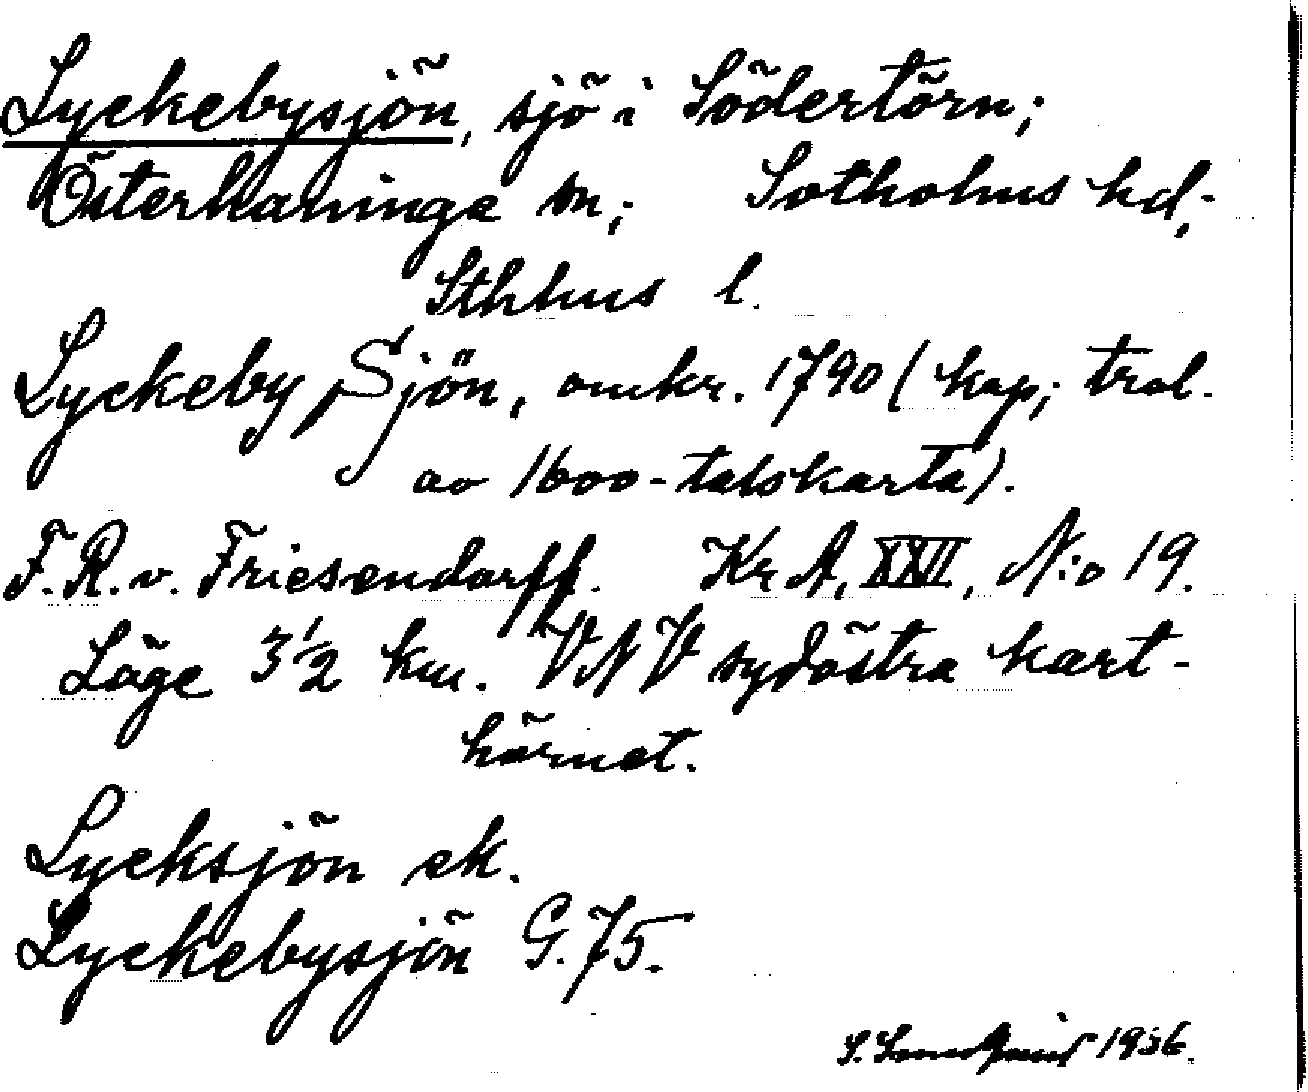 Lyckebysjön, sjö i Södertörn;
Österhaninge sn; Sotholms hd;
Sthlms l.
Lyckeby Sjön, omkr. 1790 (kop; trol.
av 1600-talskarta).
F.R. v. Friesendorff. KrA, XXII, N:o 19.
Läge 3½ km. VNV sydöstra kart-
hörnet.
Lycksjön ek.
Lyckebysjön G. 75.
S. 1936.